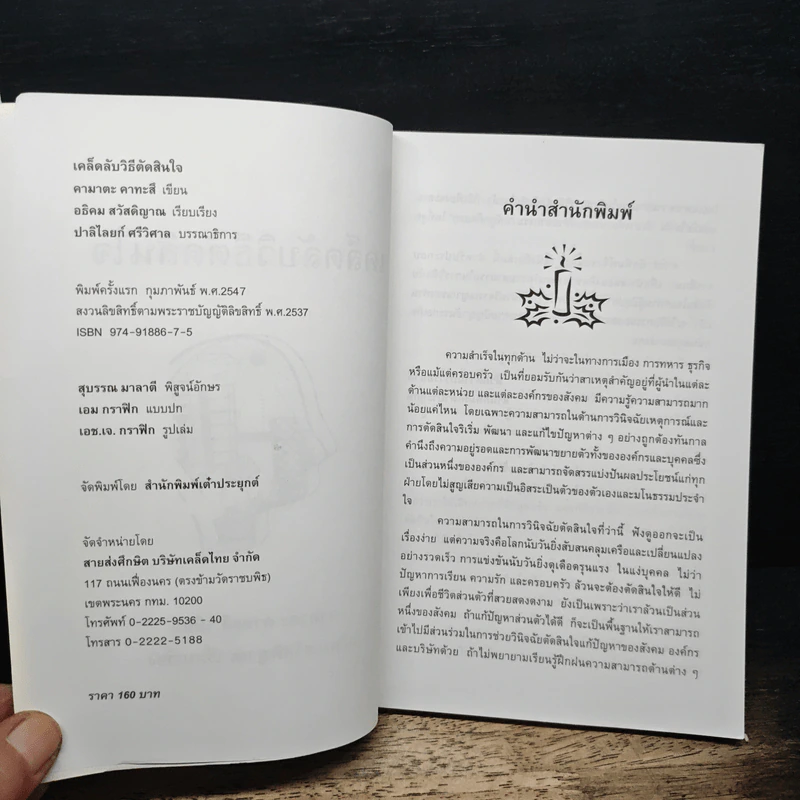 เคล็ดลับวิธีตัดสินใจ
คามาตะ คาทะสึ เขียน
อธิคม สวัสดิญาณ เรียบเรียง
ปาลิไลยก์ ศรีวิศาล บรรณาธิการ
พิมพ์ครั้งแรก กุมภาพันธ์ พ.ศ.2547
สงวนลิขสิทธิ์ตามพระราชบัญญัติลิขสิทธิ์ พ.ศ.2537
ISBN 974-91886-7-5
สุบรรณ มาลาตี พิสูจน์อักษร
เอม กราฟิก แบบปก
เอช.เจ. กราฟิก รูปเล่ม
จัดพิมพ์โดย สำนักพิมพ์เต๋าประยุกต์
จัดจำหน่ายโดย
สายส่งศึกษิต บริษัทเคล็ดไทย จำกัด
117 ถนนเฟื่องนคร (ตรงข้ามวัดราชบพิธ)
เขตพระนคร กทม. 10200
โทรศัพท์ 0-2225-9536 - 40
โทรสาร 0-2222-5188
ราคา 160 บาท
คำนำสำนักพิมพ์
ความสำเร็จในทุกด้าน ไม่ว่าจะในทางการเมือง การทหาร ธุรกิจ
หรือแม้แต่ครอบครัว เป็นที่ยอมรับกันว่าสาเหตุสำคัญอยู่ที่ผู้นำในแต่ละ
ด้านแต่ละหน่วย และแต่ละองค์กรของสังคม มีความรู้ความสามารถมาก
น้อยแค่ไหน โดยเฉพาะความสามารถในด้านการวินิจฉัยเหตุการณ์และ
การตัดสินใจริเริ่ม พัฒนา และแก้ไขปัญหาต่าง ๆ อย่างถูกต้องทันกาล
คำนึงถึงความอยู่รอดและการพัฒนาขยายตัวทั้งขององค์กรและบุคคลซึ่ง
เป็นส่วนหนึ่งขององค์กร และสามารถจัดสรรแบ่งปันผลประโยชน์แก่ทุก
ฝ่ายโดยไม่สูญเสียความเป็นอิสระเป็นตัวของตัวเองและมโนธรรมประจำ
ใจ
ความสามารถในการวินิจฉัยตัดสินใจที่ว่านี้ ฟังดูออกจะเป็น
เรื่องง่าย แต่ความจริงคือโลกนับวันยิ่งสับสนคลุมเครือและเปลี่ยนแปลง
อย่างรวดเร็ว การแข่งขันนับวันยิ่งดุเดือดรุนแรง ในแง่บุคคล ไม่ว่า
ปัญหาการเรียน ความรัก และครอบครัว ล้วนจะต้องตัดสินใจให้ดี ไม่
เพียงเพื่อชีวิตส่วนตัวที่สวยสดงดงาม ยังเป็นเพราะว่าเราล้วนเป็นส่วน
หนึ่งของสังคม ถ้าแก้ปัญหาส่วนตัวได้ดี ก็จะเป็นพื้นฐานให้เราสามารถ
เข้าไปมีส่วนร่วมในการช่วยวินิจฉัยตัดสินใจแก้ปัญหาของสังคม องค์กร
และบริษัทด้วย ถ้าไม่พยายามเรียนรู้ฝึกฝนความสามารถด้านต่าง ๆ